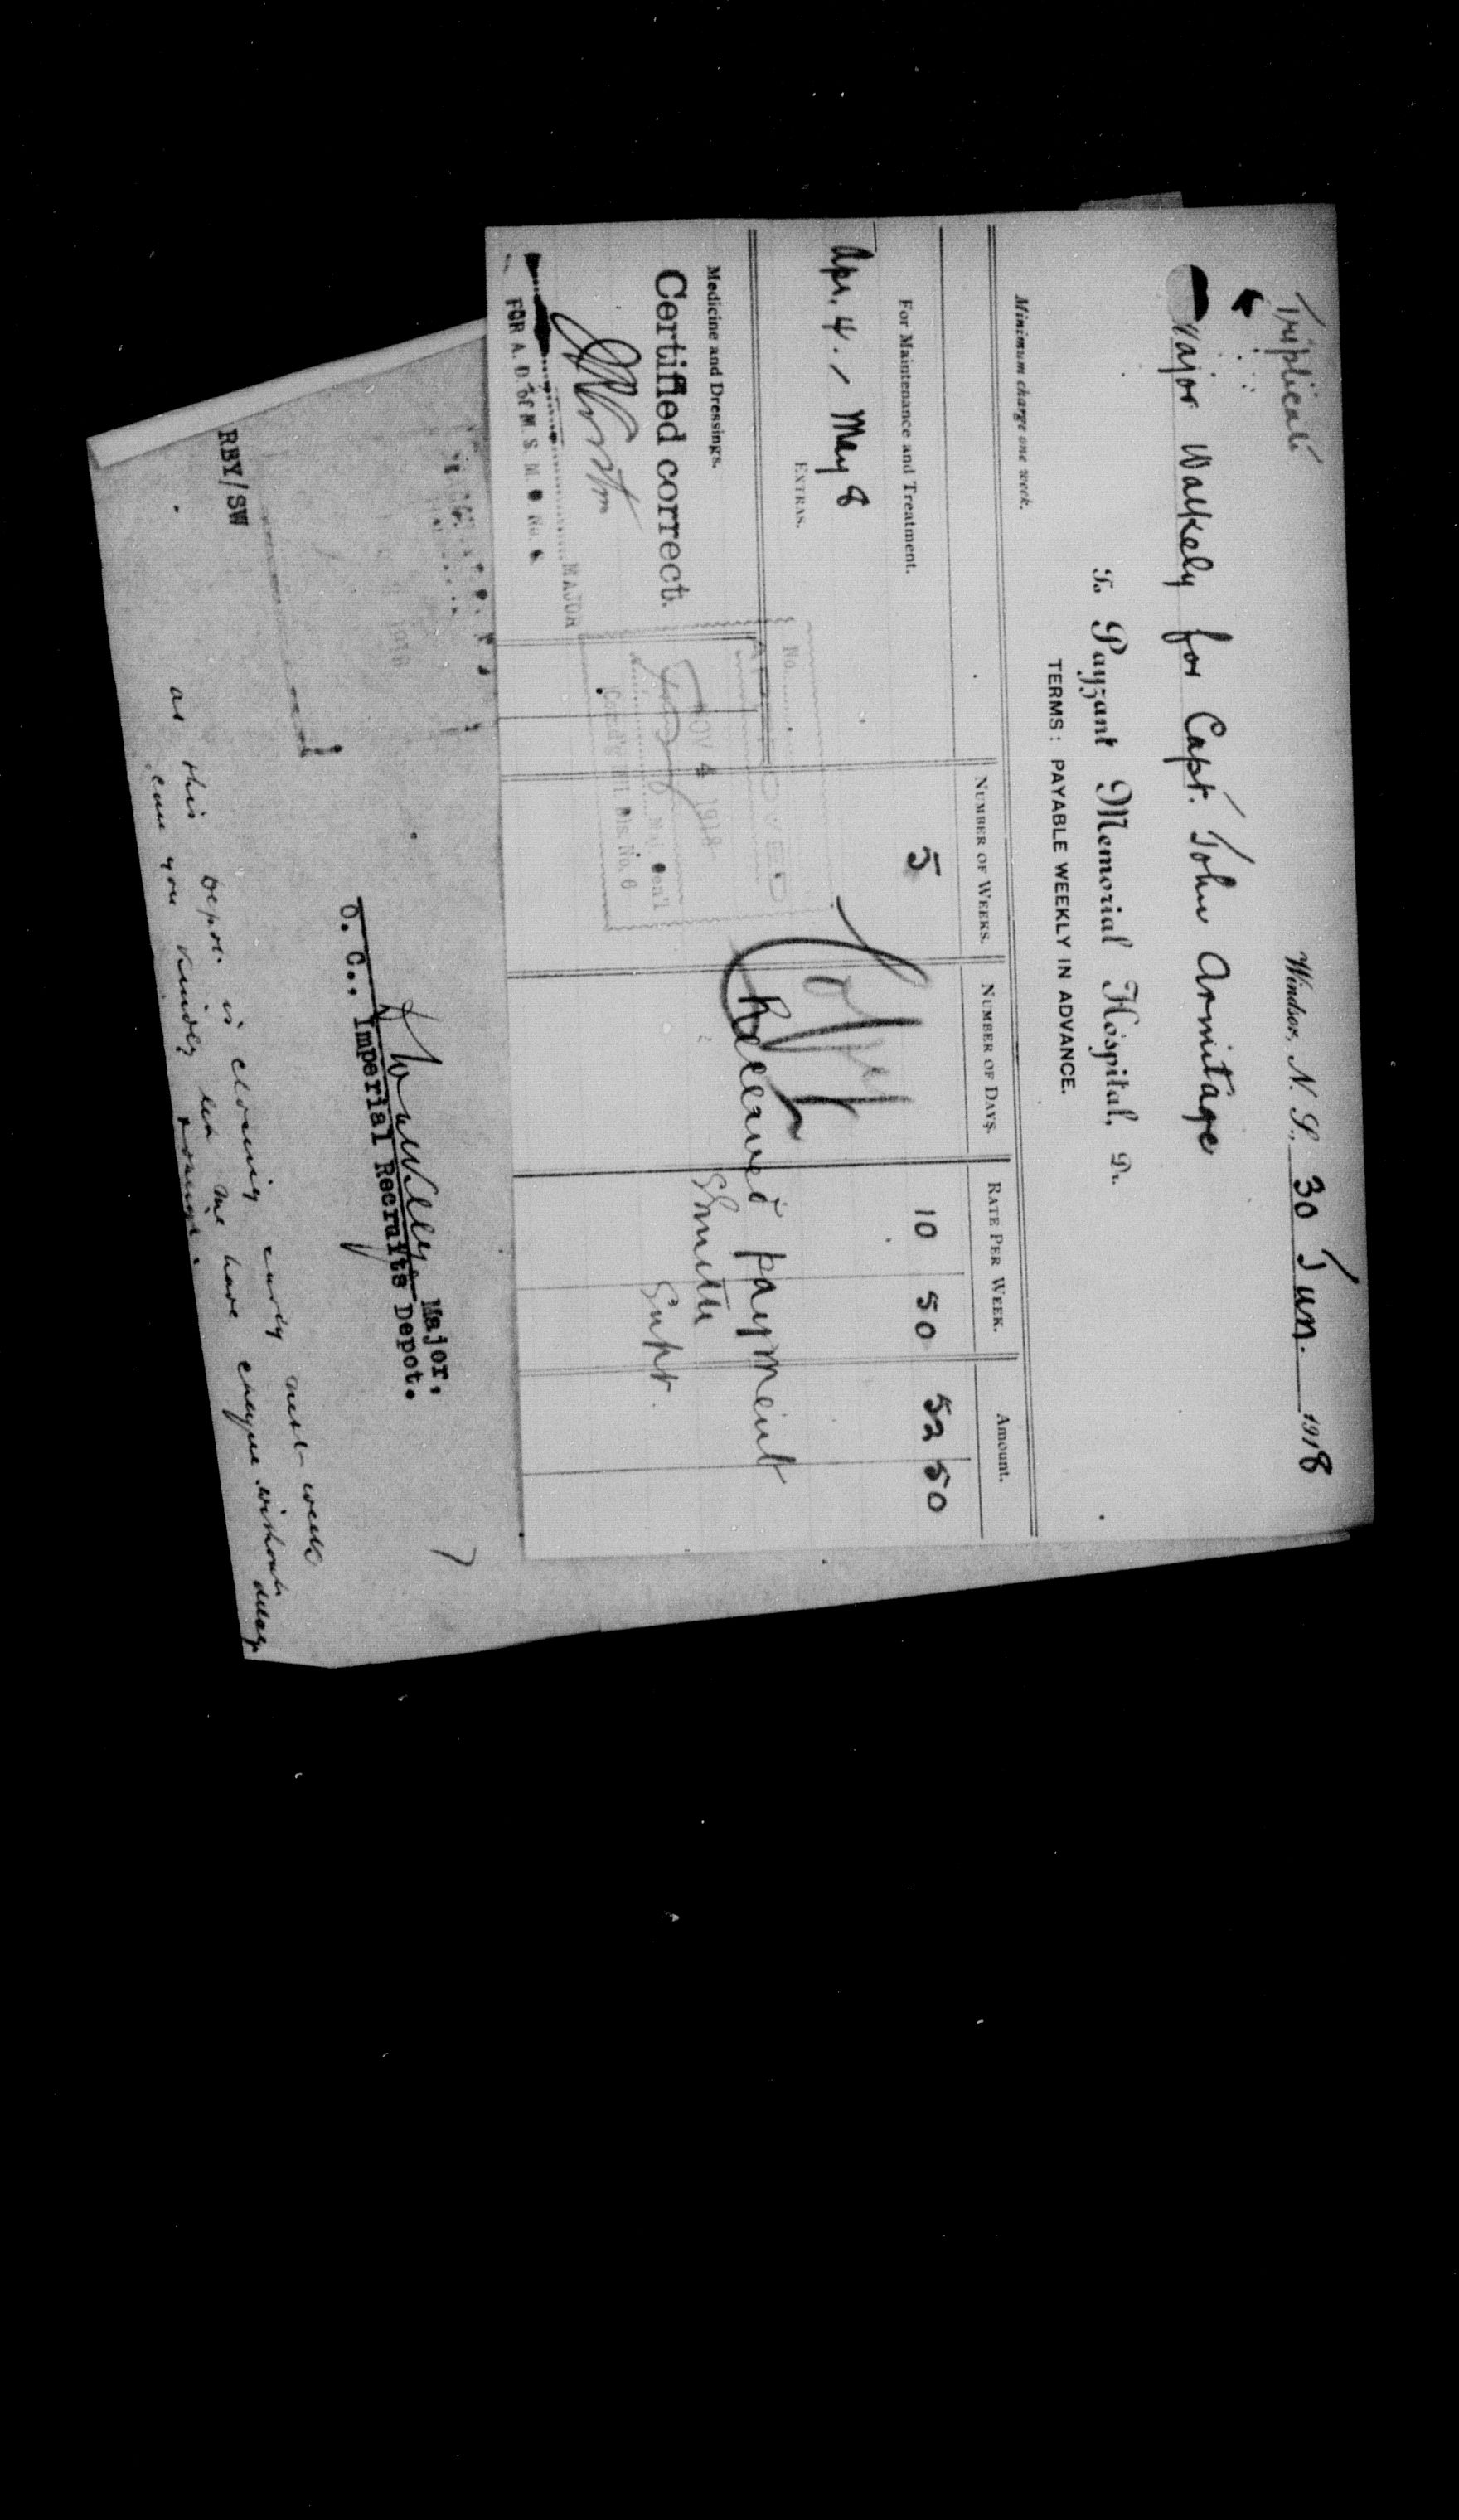 Triplicate
Windsor, N. S., 30 Jun. 1918
Major Walkely for Capt. John Armitage
To Payzant Memorial Hospital, Dr.
TERMS: PAYABLE WEEKLY IN ADVANCE.
Minimum charge one week.
NUMBER OF WEEKS. NUMBER OF DAYS. RATE PER WEEK. Amount.
For Maintenance and Treatment. 5 10 50 52 50
Apr. 4. - May 8
EXTRAS.
Copy
No.
APPROVED
Received payment
Medicine and Dressings.
NOV 4 1918
Smith
Supt
Certified correct.
Maj. Gen'l
Comd'g Mil Dis. No. 6
MAJOR
FOR A. D. of M. S. M. D No. 6
1918
Major,
O. C., Imperial Recruits Depot.
RBY/SW
as this Depot is closing early next week
can you kindly let me have cheque without delay